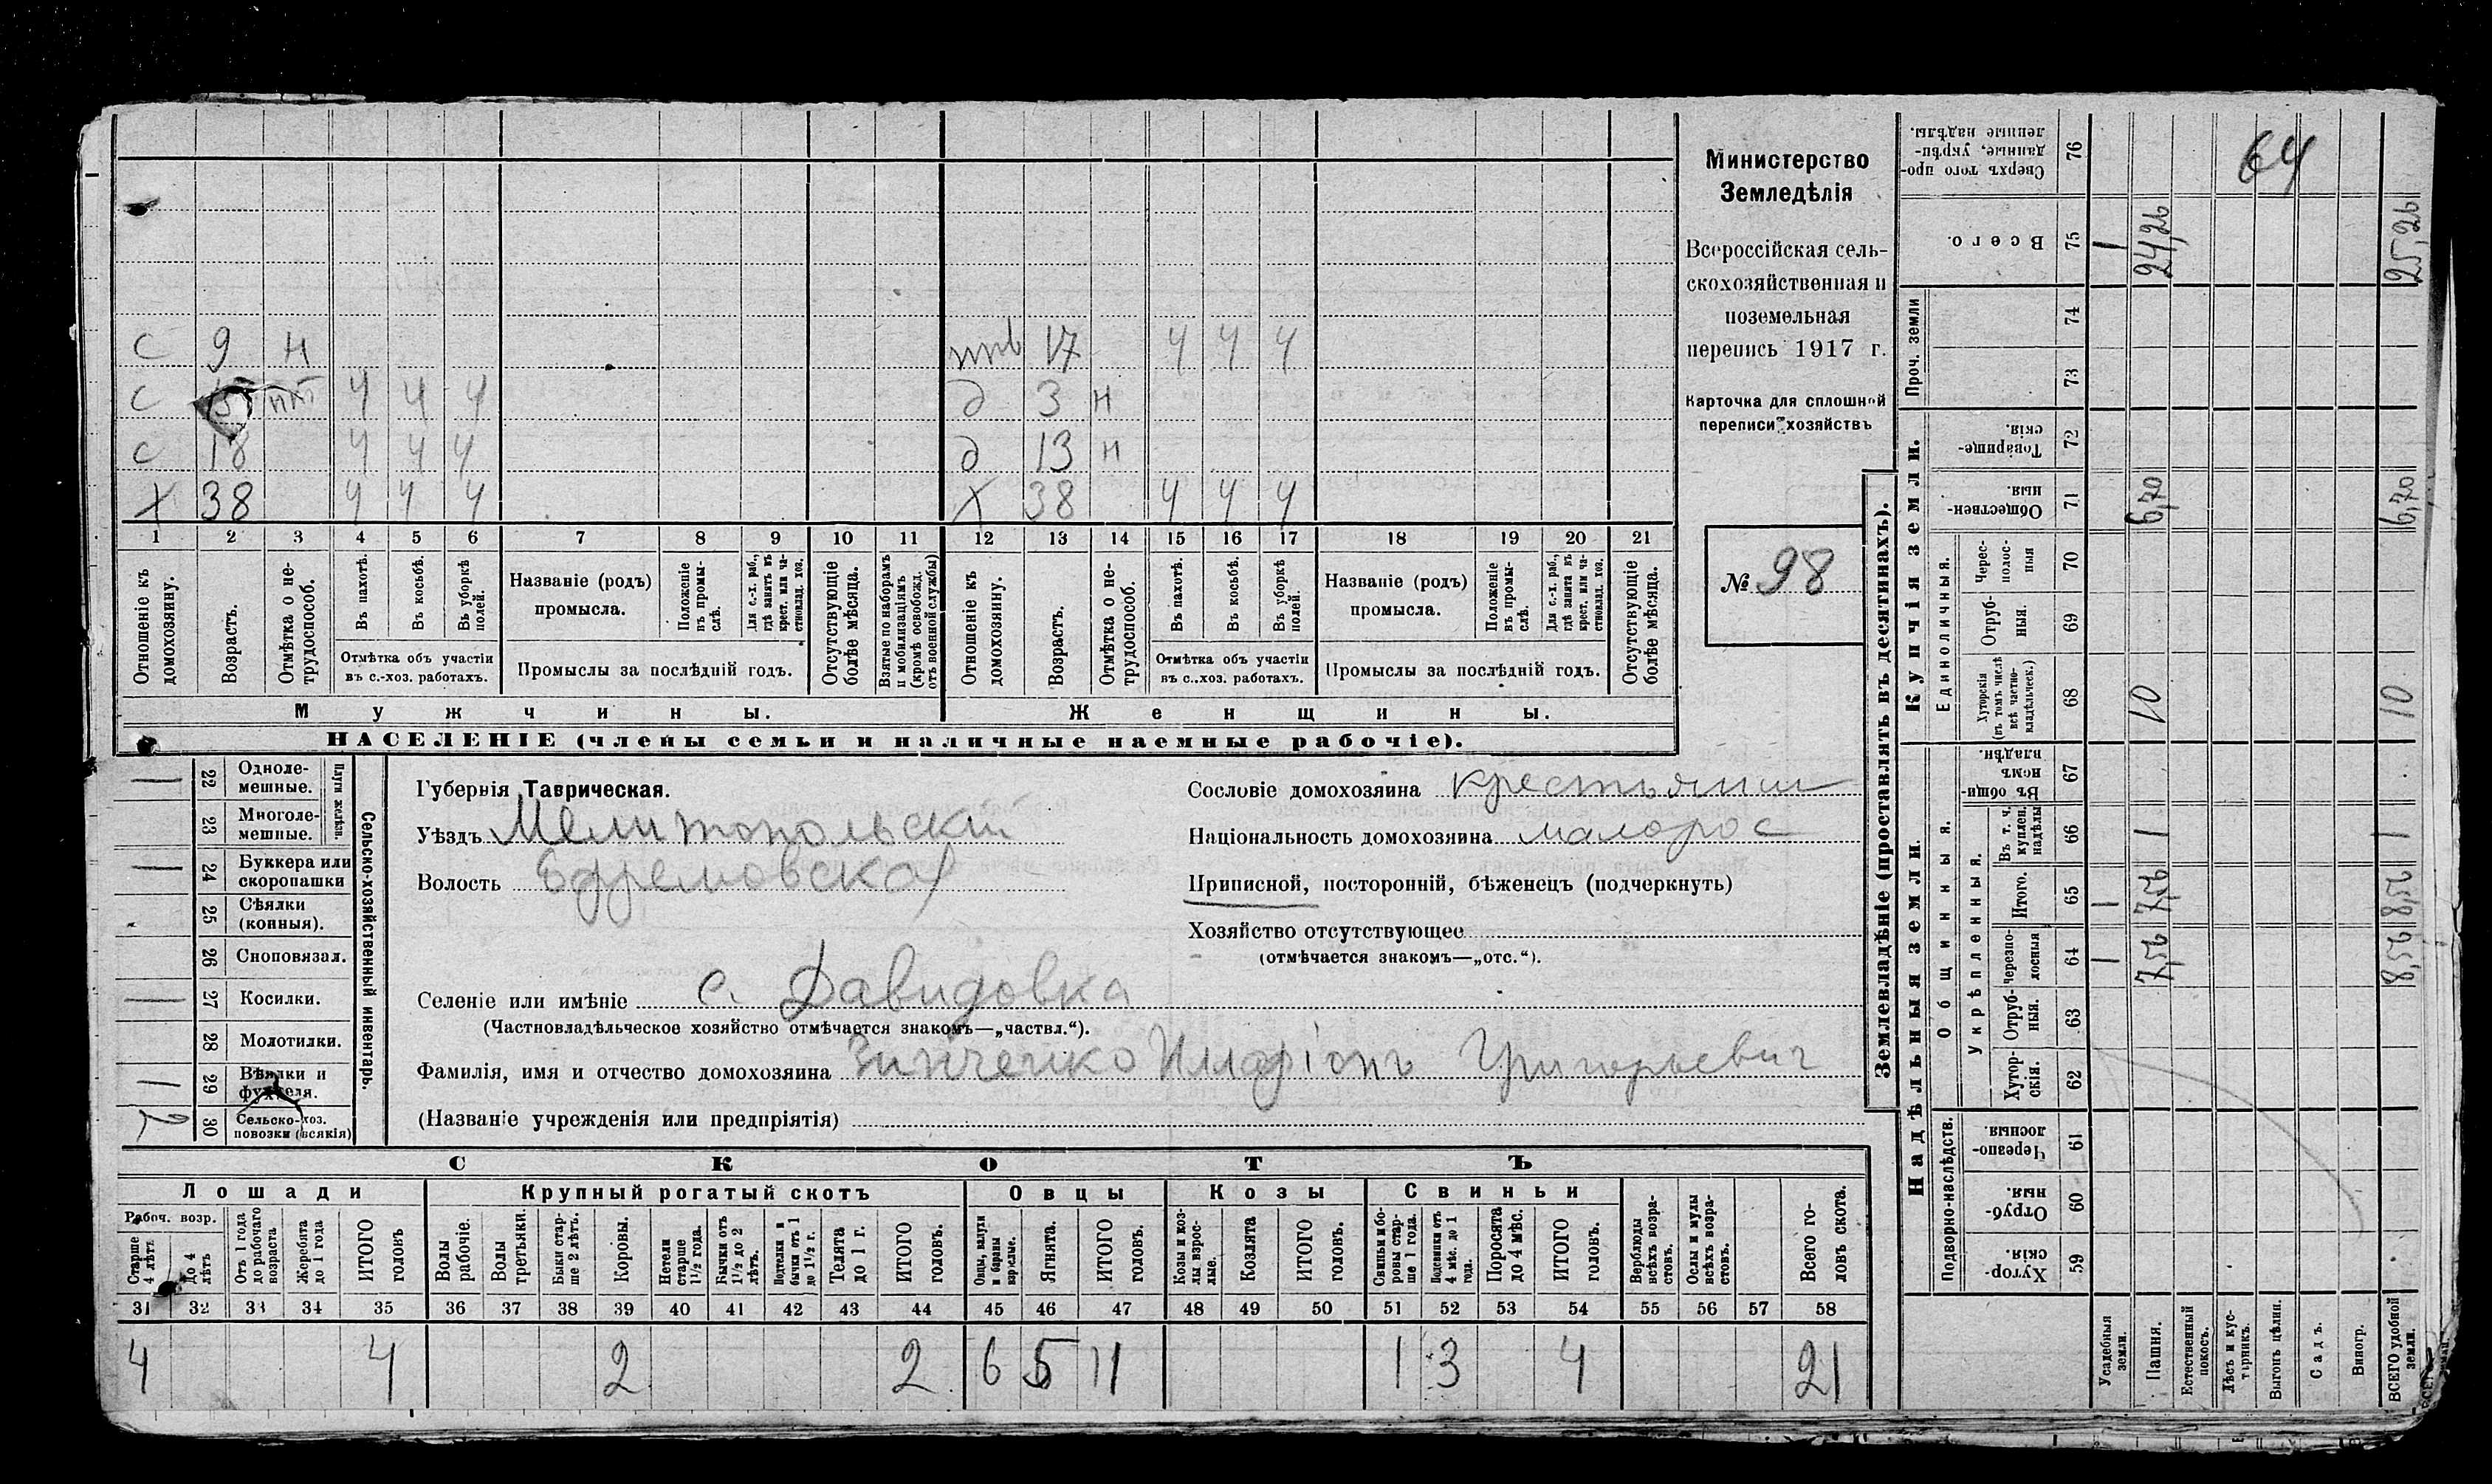 Министерство
Земледѣлія
Всероссійская сель-
скохозяйственная и
поземельная
перепись 1917 г.
Карточка для сплошной
переписи хозяйствъ
№ 98
64
С 9 Н
С 15 ппт Ч Ч Ч
С 18 Ч Ч Ч
Х 38 Ч Ч Ч
17 Ч Ч Ч
д 3 н
д 13 н
Х 38 Ч Ч Ч
1 2 3 4 5 6 7 8 9 10 11 12 13 14 15 16 17 18 19 20 21
Отношеніе къ домохозяину.
Возрастъ.
Отмѣтка о не-
трудоспособ.
Въ пахотѣ.
Въ косьбѣ.
Въ уборкѣ
полей.
Отмѣтка объ участіи
въ с.-хоз. работахъ.
Названіе (родъ)
промысла.
Положеніе
въ промы-
слѣ.
Для с.-х. раб.,
гдѣ занятъ въ
крест. или ча-
стновлад. хоз.
Промыслы за послѣдній годъ.
Отсутствующіе
болѣе мѣсяца.
Взятые по наборамъ
и мобилизаціямъ
(кромѣ освобожд.
отъ военной службы)
Отношеніе къ
домохозяину.
Возрастъ.
Отмѣтка о не-
трудоспособ.
Въ пахотѣ.
Въ косьбѣ.
Въ уборкѣ
полей.
Отмѣтка объ участіи
въ с..хоз. работахъ.
Названіе (родъ)
промысла.
Положеніе
въ промы-
слѣ.
Для с.-х. раб.,
гдѣ занята въ
крест. или ча-
стновлад. хоз.
Промыслы за послѣдній годъ.
Отсутствующіе
болѣе мѣсяца.
Мужчины.
Женщины.
НАСЕЛЕНІЕ (члены семьи и наличные наемные рабочіе).
Сельско-хозяйственный инвентарь.
Плуги желѣзн.
22 Одноле-
мешные.
23 Многоле-
мешные.
24 Буккера или
скоропашки
25 Сѣялки
(конныя).
26 Сноповязал.
27 Косилки.
28 Молотилки.
29 Вѣялки и
фухтеля.
30 Сельско-хоз.
повозки (всякія)
2
Губернія Таврическая.
Уѣздъ Мелитопольскій
Волость Ефремовская
Селеніе или имѣніе с. Давидовка
(Частновладѣльческое хозяйство отмѣчается знакомъ—„частвл.“).
Фамилія, имя и отчество домохозяина Зинченко Иларіонъ Григорьевич
(Названіе учрежденія или предпріятія)
Сословіе домохозяина крестьянин
Національность домохозяина малорос
Приписной, посторонній, бѣженецъ (подчеркнуть)
Хозяйство отсутствующее
(отмѣчается знакомъ—„отс.“).
СКОТЪ
Лошади
Крупный рогатый скотъ
Овцы
Козы
Свиньи
Рабоч. возр.
Старше
4 лѣтъ
До 4
лѣтъ
Отъ 1 года
до рабочаго
возраста
Жеребята
до 1 года
ИТОГО
головъ
Волы
рабочіе.
Волы
третьяки.
Быки стар-
ше 2 лѣтъ.
Коровы.
Нетели
старше
1½ года.
Бычки отъ
1½ до 2
лѣтъ.
Подтелки и
бычки отъ 1
до 1½ г.
Телята
до 1 г.
ИТОГО
головъ.
Овцы, валухи
и бараны
взрослые.
Ягнята.
ИТОГО
головъ.
Козы и коз-
лы взрос-
лые.
Козлята
ИТОГО
головъ.
Свиньи и бо-
ровы стар-
ше 1 года.
Подсвинки отъ
4 мѣс. до 1
года.
Поросята
до 4 мѣс.
ИТОГО
головъ.
Верблюды
всѣхъ возра-
стовъ.
Ослы и мулы
всѣхъ возра-
стовъ.
Всего го-
ловъ скота.
31 32 33 34 35 36 37 38 39 40 41 42 43 44 45 46 47 48 49 50 51 52 53 54 55 56 57 58
4 4 2 2 6 5 11 1 3 4 21
Землевладѣніе (проставлять въ десятинахъ).
Надѣльныя земли.
Купчія земли.
Проч. земли
Подворно-наслѣдств.
Общинныя.
Укрѣпленныя.
Единоличныя.
Хутор-
скія. 59
Отруб-
ныя. 60
Черезпо-
лосныя. 61
Хутор-
скія. 62
Отруб-
ныя. 63
Черезпо-
лосныя 64
Итого. 65
Въ т. ч.
куплен.
надѣлы 66
Въ общин-
номъ
владѣн. 67
Хуторскія
(въ томъ числѣ
всѣ частно-
владѣльческ.) 68
Отруб-
ныя. 69
Черес-
полос-
ныя 70
Обществен-
ныя. 71
Товарище-
скія. 72
73
74
Всего. 75
Сверхъ того про-
данные, укрѣп-
ленные надѣлы. 76
Усадебныя
земли.
1 1 1
Пашня.
7,56 7,56 1 10 6,70 24,26
Естественный
покосъ.
Лѣсъ и кус-
тарникъ.
Выгонъ цѣлин.
Садъ.
Виногр.
ВСЕГО удобной
земли.
8,56 8,56 1 10 6,70 25,26